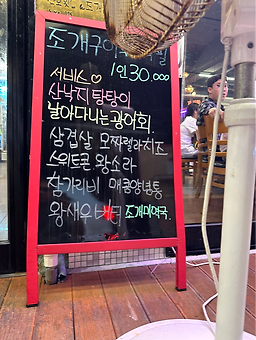 조개구이
1인 30.000
서비스♡
산낙지 탕탕이
날아다니는 광어회
삼겹살 모짜렐라치즈
스위트콘 왕소라
참가리비 매콤양념통
왕새우 조개미역국